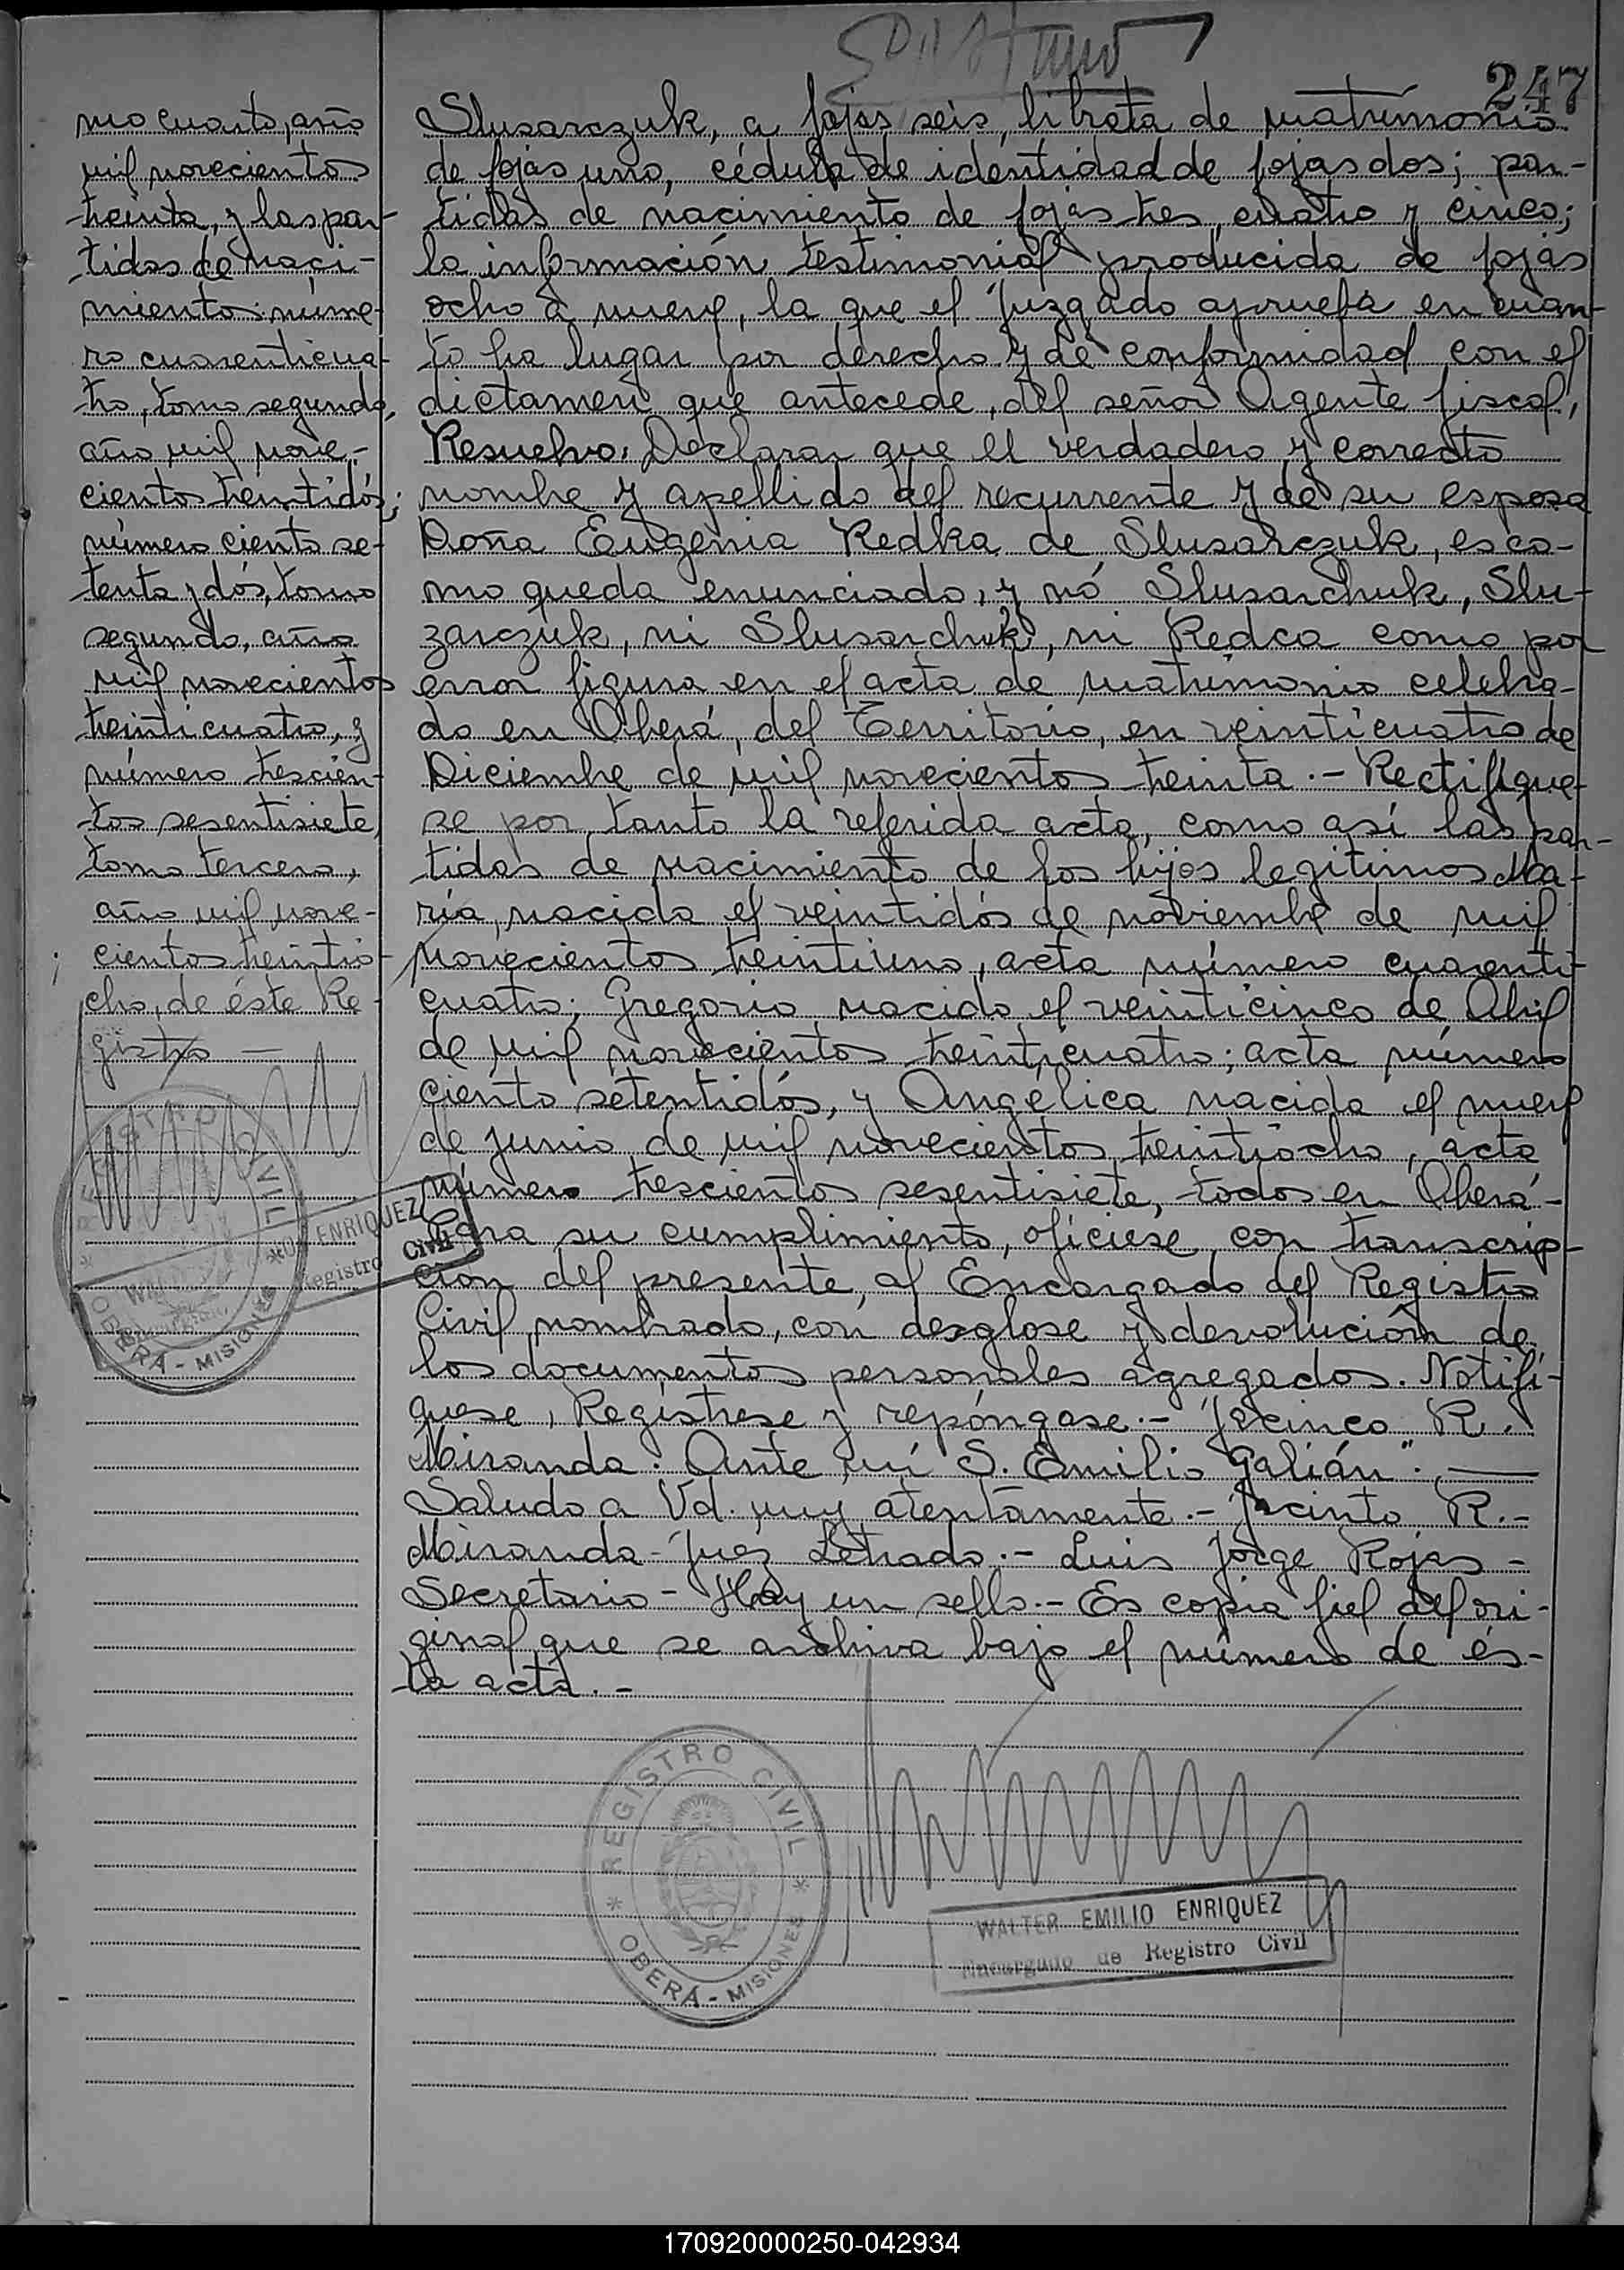 247
mo cuarto, año
mil novecientos
treinta, y las par-
tidas de naci-
miento: núme-
ro cuarenticua-
tro, tomo segundo,
año mil nove-
cientos treintidós;
número ciento se-
tenta y dós, tomo
segundo, año
mil novecientos
treinticuatro, y
número trescien-
tos sesentisiete,
tomo tercero,
año mil nove-
cientos treintio-
cho, de éste Re-
gistro —
REGISTRO CIVIL
OBERÁ - MISIONES
ENRIQUEZ
Registro Civil
Slusarczuk, a fojas seis, libreta de matrimonio
de fojas uno, cédula de identidad de fojas dos; par-
tidas de nacimiento de fojas tres, cuatro y cinco;
la información testimonial producida de fojas
ocho a nueve, la que el Juzgado aprueba en cuan-
to ha lugar por derecho y de conformidad con el
dictamen que antecede, del señor Agente fiscal,
Resuelvo: Declarar que el verdadero y correcto
nombre y apellido del recurrente y de su esposa
Doña Eugenia Redka de Slusarczuk, es co-
mo queda enunciado, y nó Slusarchuk, Slu-
zarczuk, ni Slusarchuk, ni Redca como por
error figura en el acta de matrimonio celebra-
do en Oberá, del Territorio, en veinticuatro de
Diciembre de mil novecientos treinta.- Rectifíque-
se por tanto la referida acta, como así las par-
tidas de nacimiento de los hijos legitimos Ma-
ría, nacida el veintidós de noviembre de mil
novecientos treintiuno, acta número cuarenti-
cuatro; Gregorio nacido el veinticinco de Abril
de mil novecientos treinticuatro; acta número
ciento setentidós, y Angélica nacida el nueve
de junio de mil novecientos treintiocho, acta
número trescientos sesentisiete, todos en Oberá-
Para su cumplimiento, ofíciese, con transcrip-
ción del presente, al Encargado del Registro
Civil nombrado, con desglose y devolución de
los documentos personales agregados. Notifí-
quese, Regístrese y repóngase.- Jacinco R.
Miranda. Ante mí S. Emilio Galián".—
Saludo a Vd. muy atentamente.- Jacinto R.-
Miranda - Juez Letrado.- Luis Jorge Rojas -
Secretario - Hay un sello.- Es copia fiel del ori-
ginal que se archiva bajo el número de és-
ta acta.-
REGISTRO CIVIL
OBERÁ - MISIONES
WALTER EMILIO ENRIQUEZ
Encargado de Registro Civil
170920000250-042934